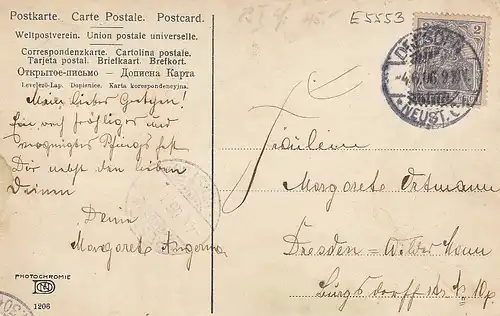 Postkarte. Carte Postale. Postcard.
Weltpostverein. Union postale universelle.
Correspondenzkarte. Cartolina postale.
Tarjeta postal. Briefkaart. Brefkort.
Открытое-письмо – Дописна Карта
Levelező-Lap. Dopisnice. Karta korespondencyjna.
Mein lieber Gretchen!
Ein recht fröhliges und
vergnügtes Pfingstfest
Dir nebst den lieben
Deinen
Deine
Margarete
PHOTOCHROMIE
1206
E5553
2
DRESDEN
-4.6.06. 9
*NEUST.
Fräulein
Margarete Ortmann
Dresden = Wilder Mann
Burgsdorffstr.